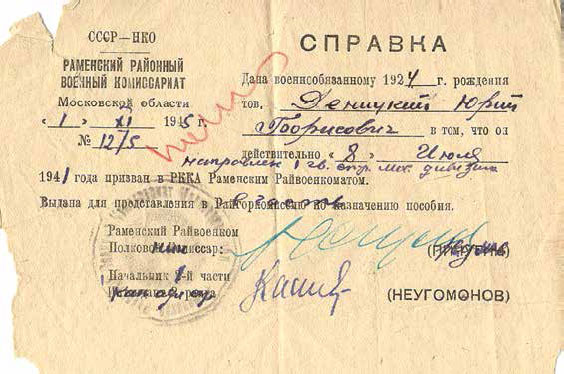 СССР—НКО
РАМЕНСКИЙ РАЙОННЫЙ
ВОЕННЫЙ КОМИССАРИАТ
Московской области
"1" XI 1945 г.
№ 12/5
СПРАВКА
Дана военнообязанному 1924 г. рождения
тов. Деницкий Юрий
Борисович в том, что он
действительно "8" Июля
направлен 1 гв. стр. мех. дивизия
1941 года призван в РККА Раменским Райвоенкоматом.
Выдана для представления в Райгоркомиссию по назначению пособия.
Раменский Райвоенком
Полковой комиссар:
Начальник 1-й части
(НЕУГОМОНОВ)